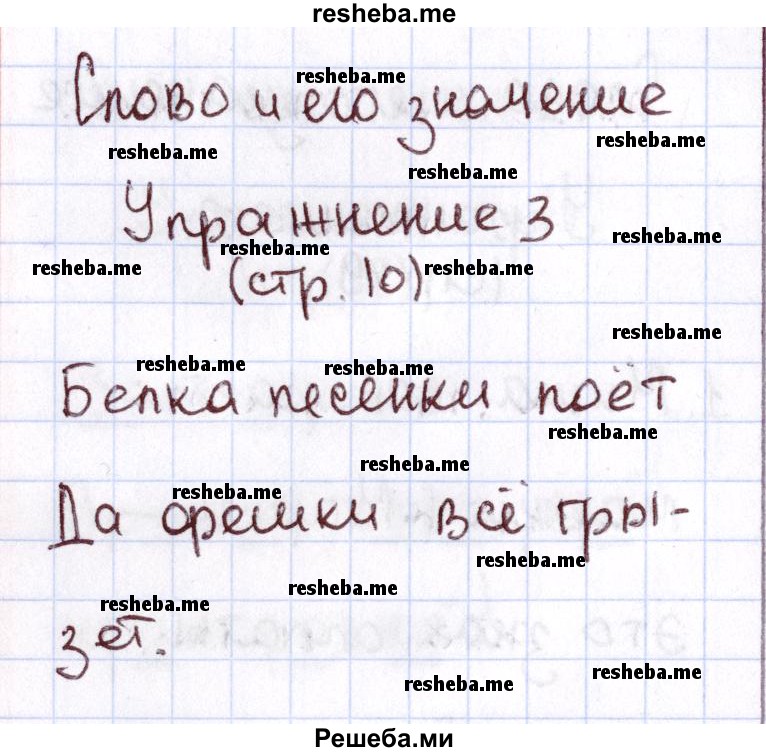 resheba.me
resheba.me
Слово и его значение
resheba.me
resheba.me
resheba.me
Упражнение 3
resheba.me
resheba.me
resheba.me
resheba.me
(стр. 10)
resheba.me
resheba.me
resheba.me
Белка песенки поёт
resheba.me
resheba.me
resheba.me
Да орешки всё гры-
resheba.me
resheba.me
resheba.me
зет.
resheba.me
resheba.me
Решеба.ми